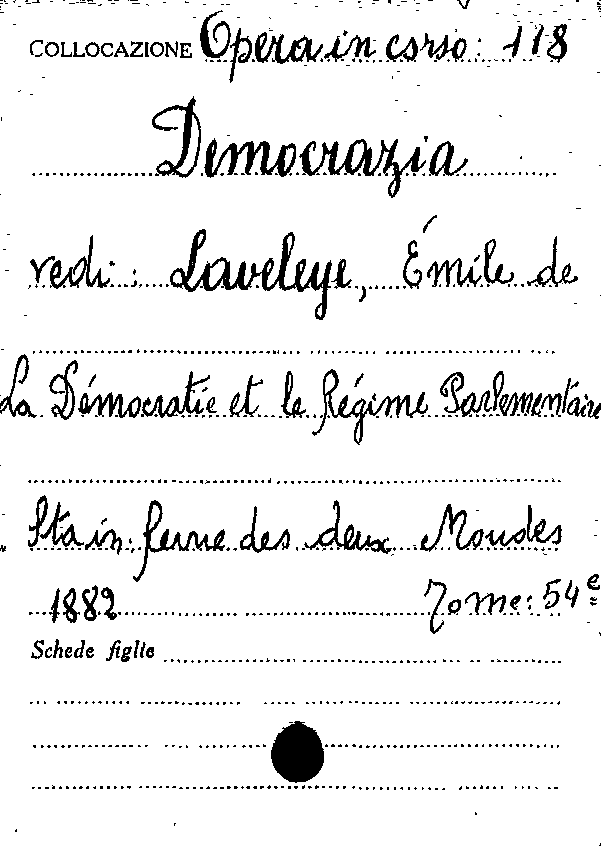 COLLOCAZIONE Opera in corso: 118
Democrazia
vedi: Laveleye, Émile de
La Démocratie et le Régime Parlementaire
Sta in: Revue des deux Mondes
1882 Tome: 54e
Schede figlie